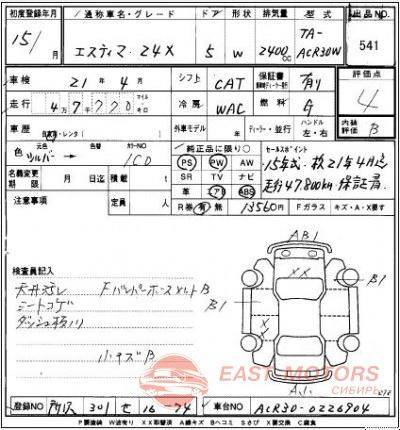 初度登録年月 通称車名・グレード ドア 形状 排気量 型式 出品No.
15/ 月 エスティマ 24X 5 W 2400cc TA-ACR30W 541
車検 21年 4月 シフト CAT 保証書 有り 評価点
走行 4万7770 マイル キロ 冷房 WAC 燃料 ガ 4
車歴 自家用・レンタ( ) 外車モデル 年 ディーラー・並行 ハンドル 左・右 内装評価 B
色 元色 シルバー → 色替 カラーNO 1C0 純正品に限り○ セールスポイント
PS PW AW 15年式・検21年4月迄
名義変更期限 月 日迄 積載 t SR TV ナビ 走行47,800km 保証書
革 エアB ABS
注意事項 定員 人 R券 有 無 13560円 Fガラス キズ・A・X要す
AB1
検査員記入
天井汚レ Fバンパーホースメルト B
シートコゲ
ダッシュ板川
小キズB
XX
B1
B1
X
A1
EAST MOTORS
СИБИРЬ
登録No. 所沢 301 せ 16-74 車台No. ACR30-0226904
P要塗装 W波有り XX取替済 A線キズ Bヘコミ Sさび X要交換 C腐食